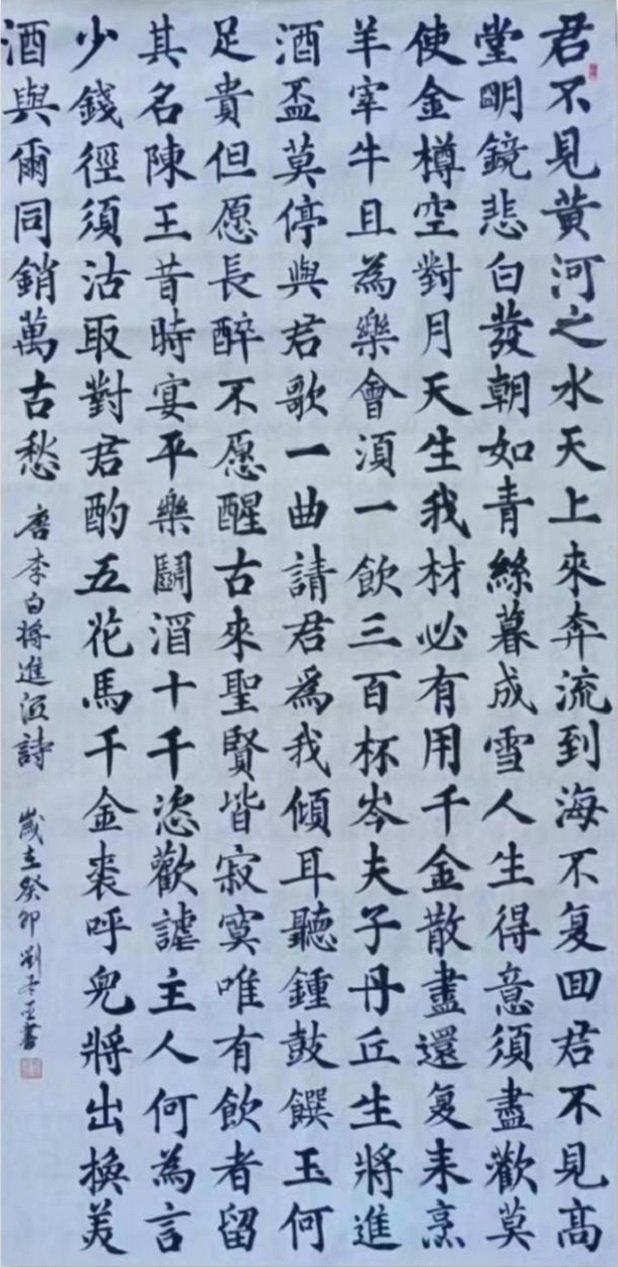 君不見黃河之水天上來奔流到海不复回君不見高
堂明鏡悲白發朝如青絲暮成雪人生得意須盡歡莫
使金樽空對月天生我材必有用千金散盡還复来烹
羊宰牛且為樂會須一飲三百杯岑夫子丹丘生將進
酒盃莫停與君歌一曲請君爲我傾耳聽鍾鼓饌玉何
足貴但愿長醉不愿醒古來聖賢皆寂寞唯有飲者留
其名陳王昔時宴平樂鬭酒十千恣歡謔主人何為言
少錢徑須沽取對君酌五花馬千金裘呼兒將出換美
酒與爾同銷萬古愁
唐李白將進酒詩
歲在癸卯劉書